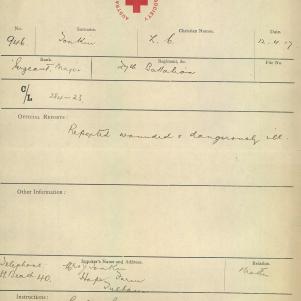 SOCIETY
AUSTRA
No. Surname. Christian Names. Date.
946 Tonkin L. C. 12.4.17
Rank. Regiment, &c. File No.
Sergeant Major 27th Battalion
C/L 284-23
OFFICIAL REPORTS:
Reported wounded & dangerously ill.
Other Information:
Inquirer's Name and Address. Relation.
Telephone Mrs Tonkin Mother
Beach 40. Farm
Instructions: